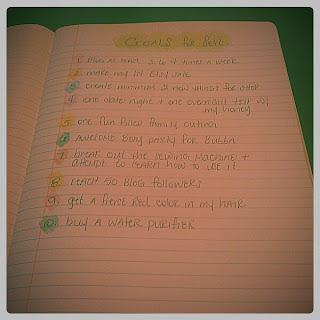 GOALS for
1. Blog at least 3 to 4 times a week
2. make my 1st Etsy sale
3. create minimum 2 new things for shop
4. one date night + one overdue trip w/
my honey
5. one fun filled family outing
6. awesome party for Bubba
7. break out the sewing machine +
attempt to learn how to use it
8. reach 50 Blog followers
9. get a fierce red color in my hair
10. buy a water purifier